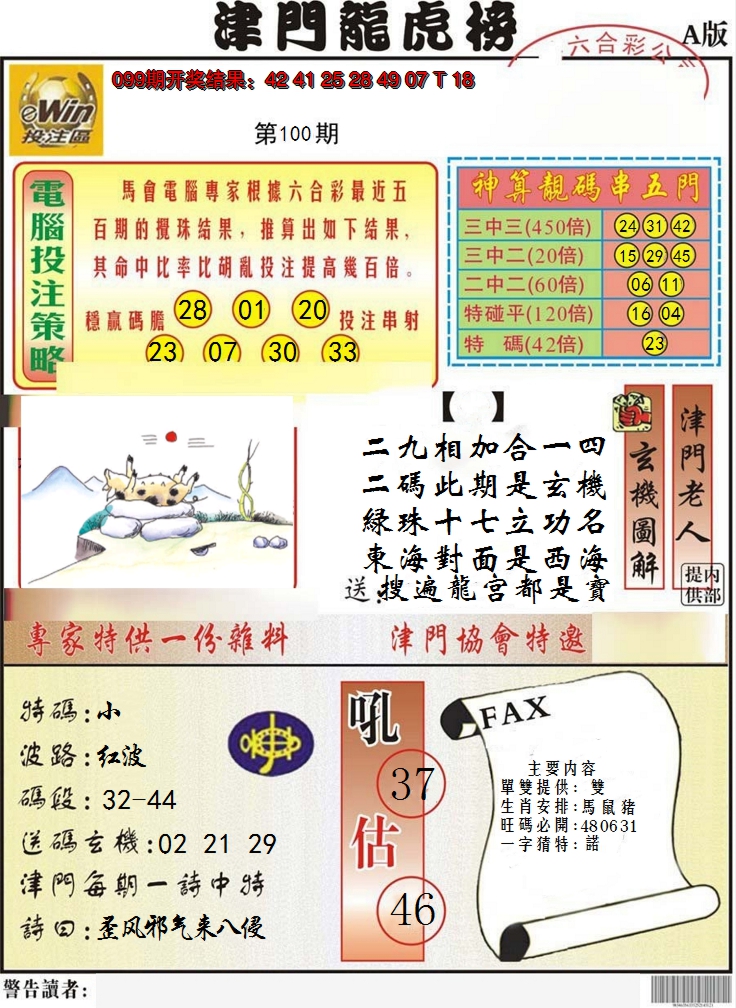 津門龍虎榜
六合彩公
A版
eWin
投注區
099期开奖结果：42 41 25 28 49 07 T 18
第100期
電腦投注策略
馬會電腦專家根據六合彩最近五
百期的攪珠结果，推算出如下结果，
其命中比率比胡亂投注提高幾百倍。
穩赢碼膽 28 01 20 投注串射
23 07 30 33
神算靚碼串五門
三中三(450倍) 24 31 42
三中二(20倍) 15 29 45
二中二(60倍) 06 11
特碰平(120倍) 16 04
特 碼(42倍) 23
【 】
二九相加合一四
二碼此期是玄機
緑珠十七立功名
東海對面是西海
送:搜遍龍宫都是寶
玄機圖解
津門老人
内部提供
專家特供一份雜料
津門協會特邀
特碼:小
波路:红波
碼段: 32-44
送碼玄機:02 21 29
津門每期一詩中特
詩曰:歪风邪气来八侵
吼
37
估
46
FAX
主要内容
單雙提供: 雙
生肖安排:馬鼠猪
旺碼必開:480631
一字猜特: 諾
警告讀者: